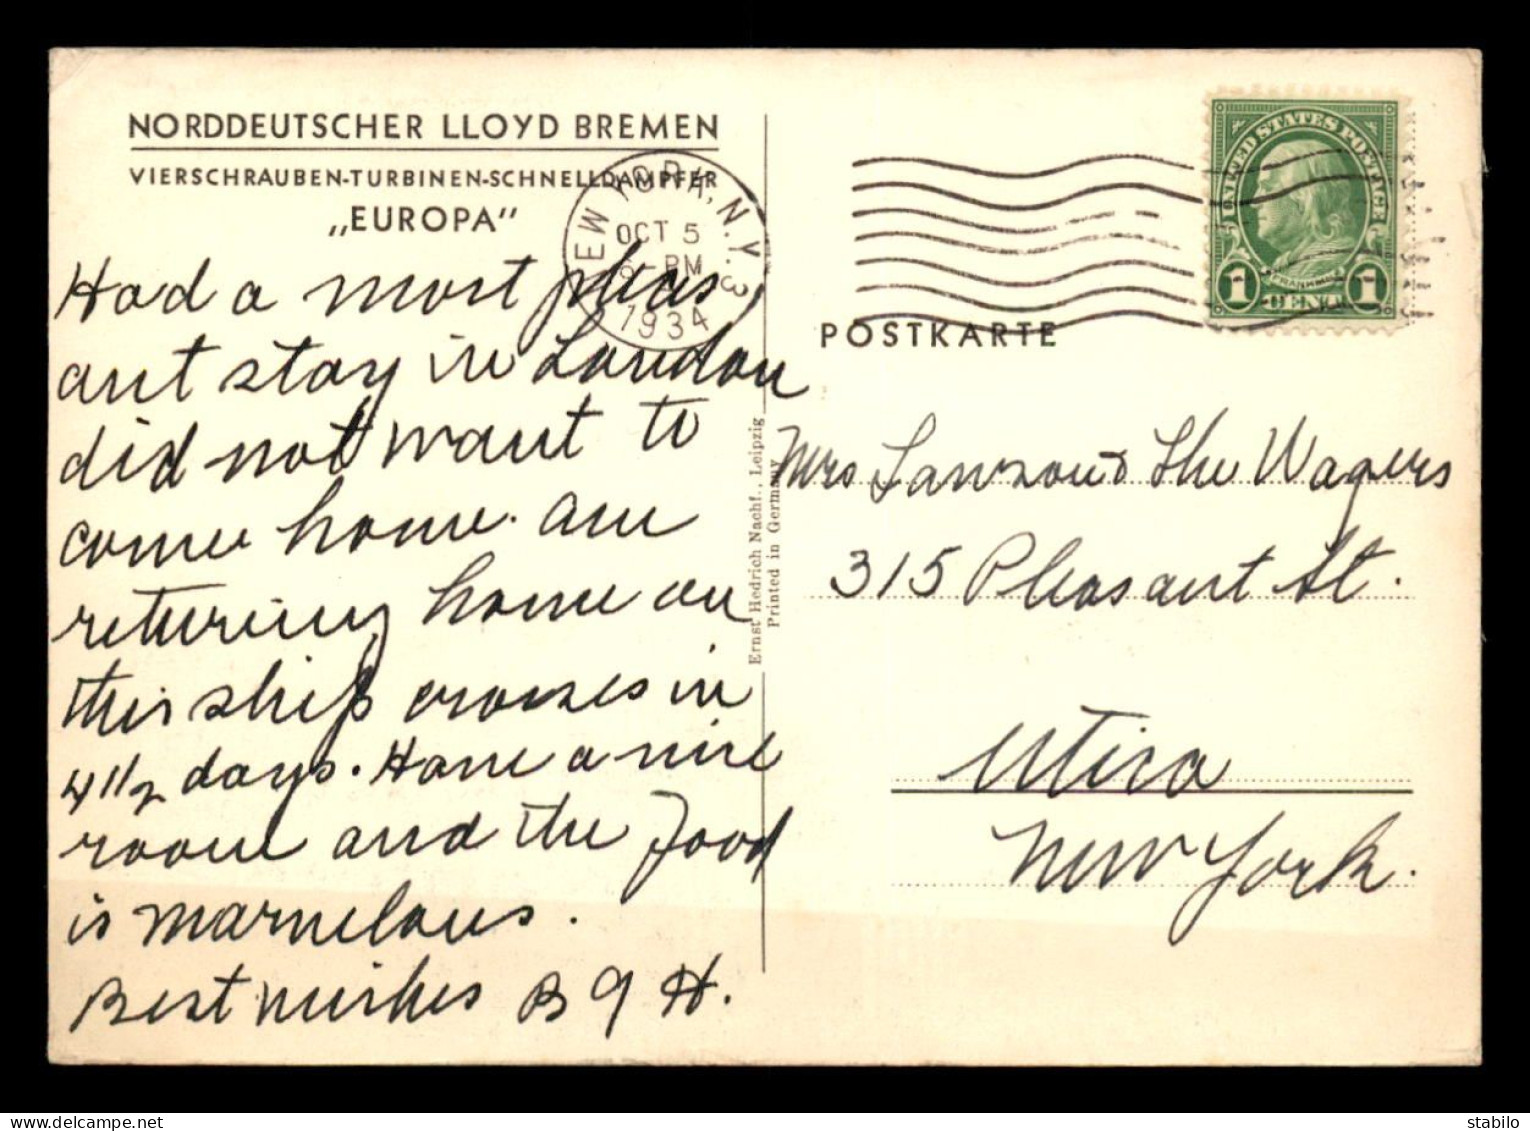 NORDDEUTSCHER LLOYD BREMEN
VIERSCHRAUBEN-TURBINEN-SCHNELLDAMPFER
„EUROPA"
NEW YORK, N.Y. 3
OCT 5
6-PM
1934
UNITED STATES POSTAGE
FRANKLIN
1 CENT 1
POSTKARTE
Had a most pleas
ant stay in London
did not want to
come home. am
returning home on
this ship crosses in
4 1/2 days. Have a nice
room and the food
is marvelous.
Best wishes B G H.
Ernst Hedrich Nachf., Leipzig
Printed in Germany
Mrs Lawson & The Wagers
315 Pleasant St.
Utica
New York.
delcampe.net
stabilo